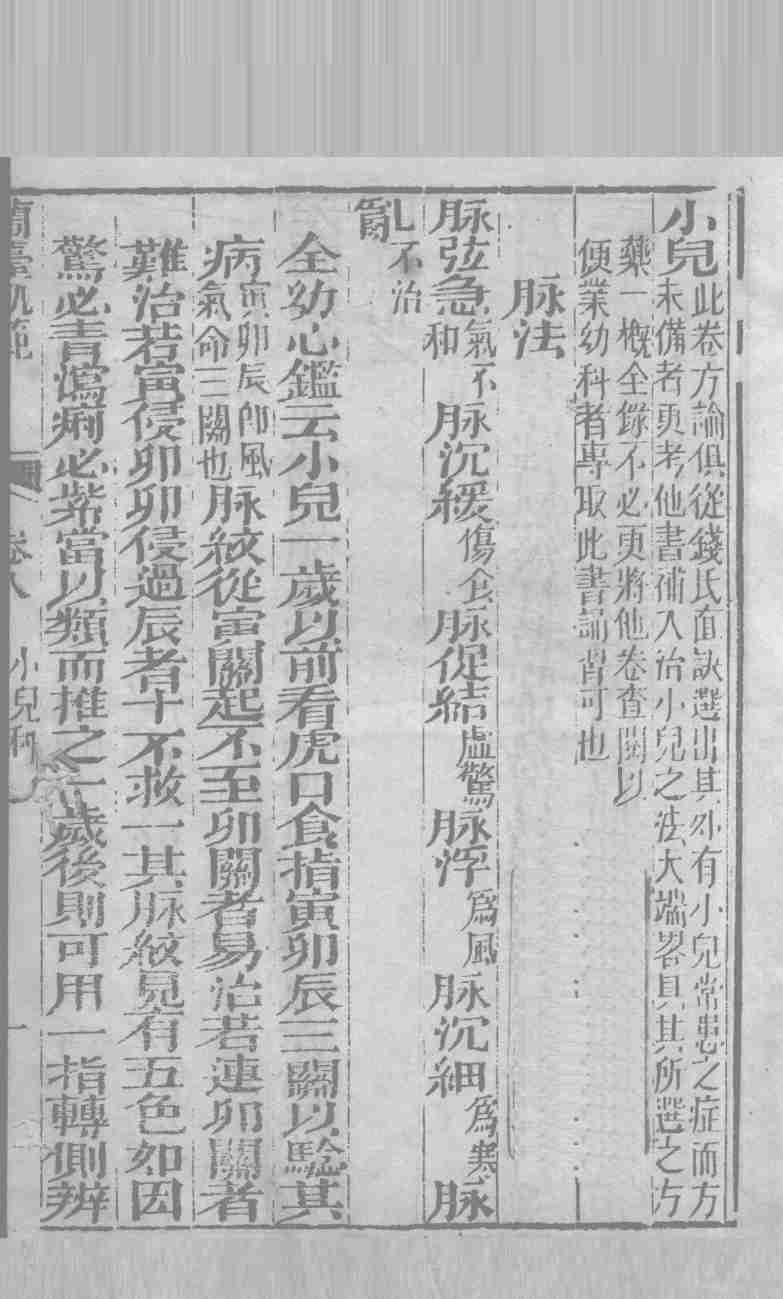 小兒此卷方論俱從錢氏直訣選出其外有小兒常患之症而方
未備者更考他書補入治小兒之法大端畧具其所選之方
藥一槪全錄不必更將他卷查閱以
便業幼科者專取此書誦習可也
脉法
脉弦急氣不和脉沉緩傷食脉促結虛驚脉浮爲風脉沉細爲寒脉
亂不治
全幼心鑑云小兒一歲以前看虎口食指寅卯辰三關以驗其
病寅卯辰卽風氣命三關也脉紋從寅關起不至卯關者易治若連卯關者
難治若寅侵卯卯侵過辰者十不救一其脉紋見有五色如因
驚必靑瀉痢必紫當以類而推之一歲後則可用一指轉側辨
蘭臺軌範 卷八 小兒 一